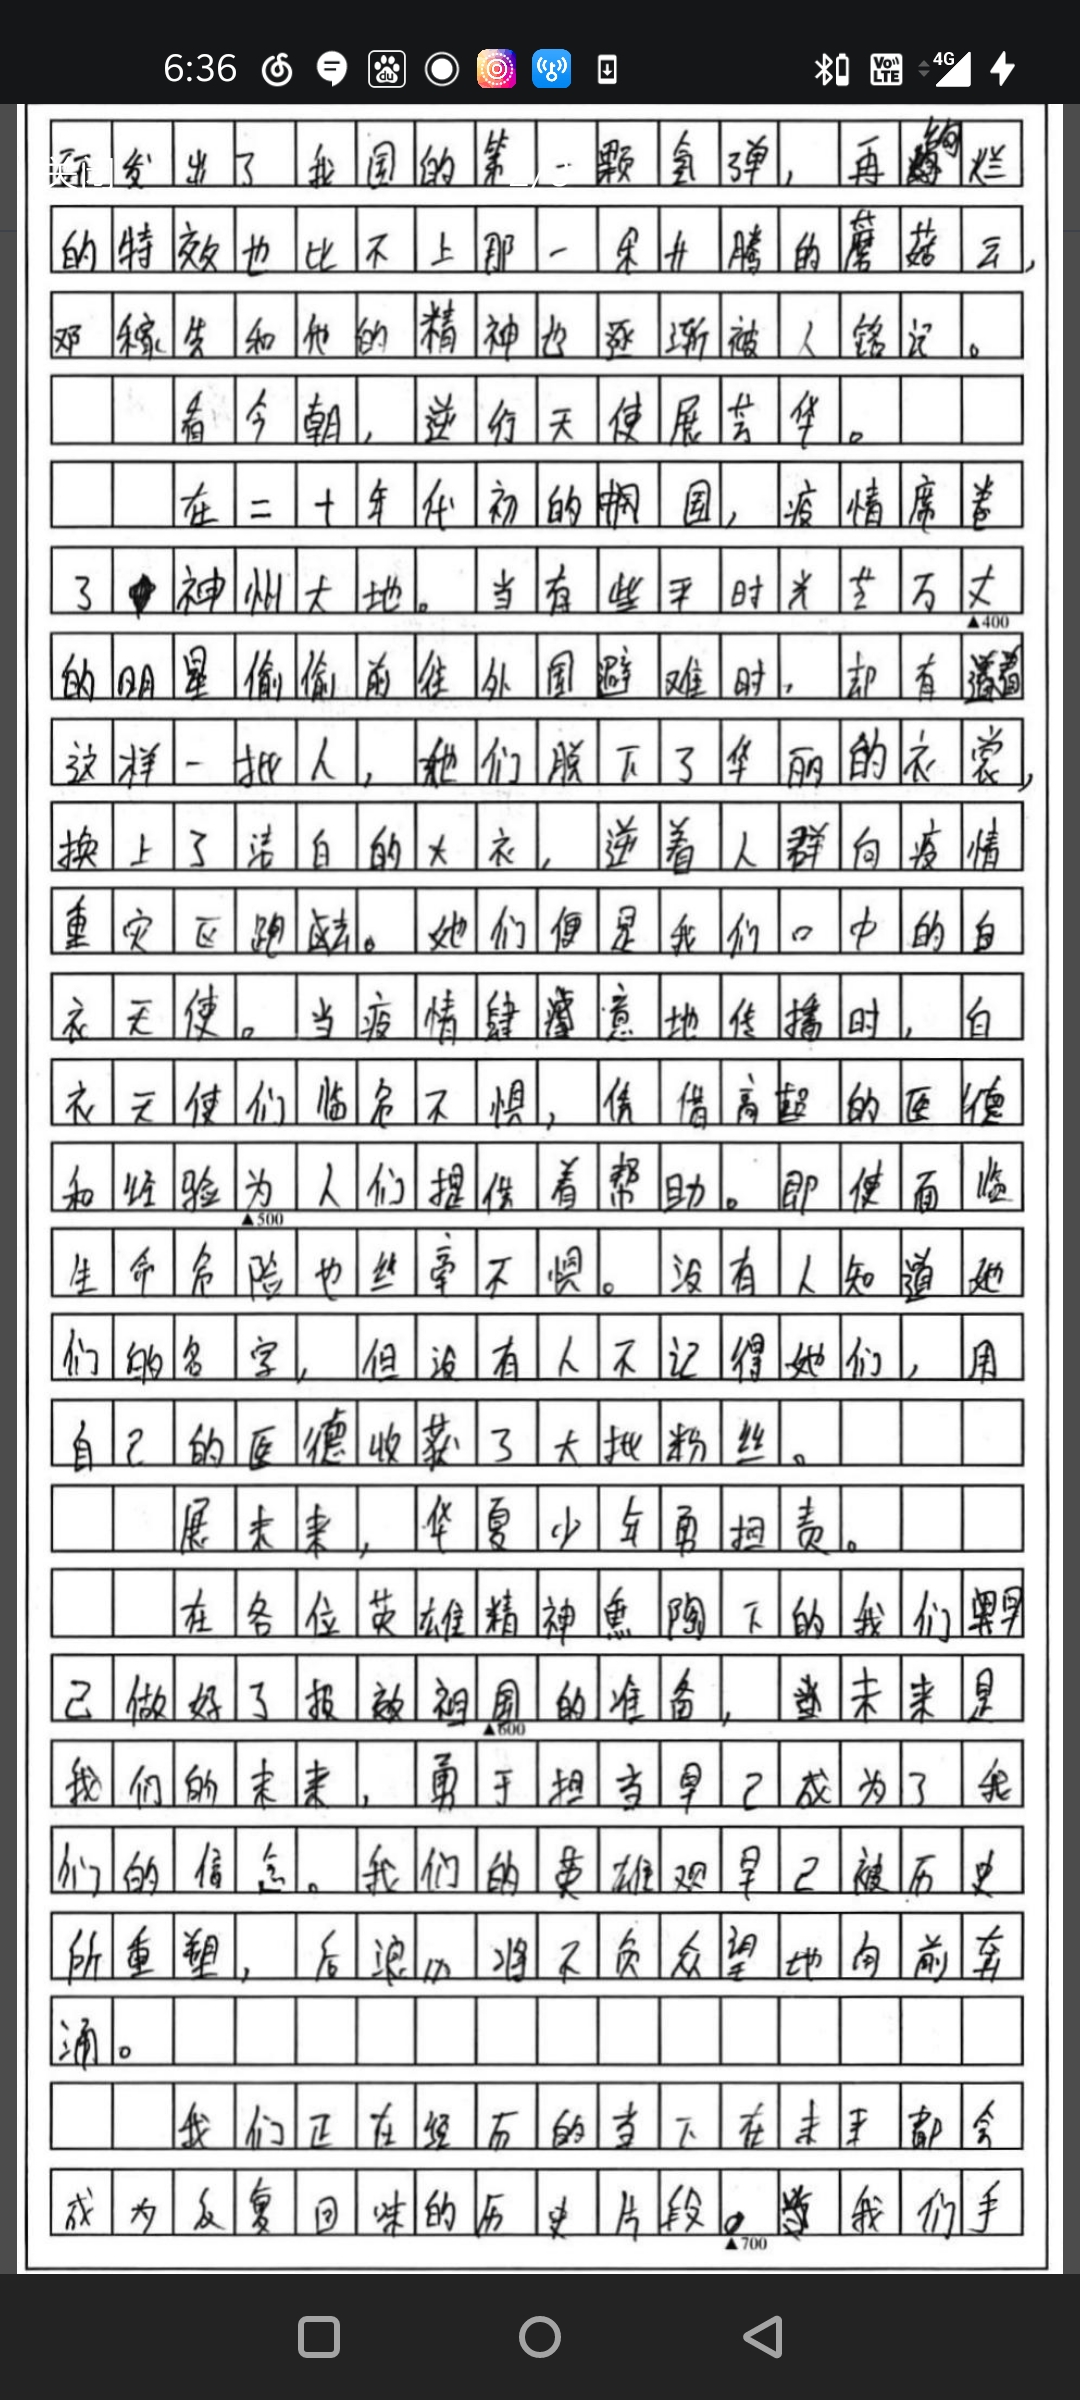 6:36
4G
研发出了我国的第一颗氢弹，再绚烂
的特效也比不上那一朵升腾的蘑菇云，
邓稼先和他的精神也逐渐被人铭记。
看今朝，逆行天使展芸华。
在二十年代初的中国，疫情席卷
了神州大地。当有些平时光芒万丈
▲400
的明星偷偷前往外国避难时，却有着
这样一批人，她们脱下了华丽的衣裳，
换上了洁白的大衣，逆着人群向疫情
重灾区跑去。她们便是我们口中的白
衣天使。当疫情肆意地传播时，白
衣天使们临危不惧，凭借高超的医德
和经验为人们提供着帮助。即使面临
▲500
生命危险也丝毫不惧。没有人知道她
们的名字，但没有人不记得她们，用
自己的医德收获了大批粉丝。
展未来，华夏少年勇担责。
在各位英雄精神熏陶下的我们早
已做好了报效祖国的准备，未来是
▲600
我们的未来，勇于担当早已成为了我
们的信念。我们的英雄观早已被历史
所重塑，后浪必将不负众望地向前奔
涌。
我们正在经历的当下在未来都会
成为反复回味的历史片段。当我们手
▲700